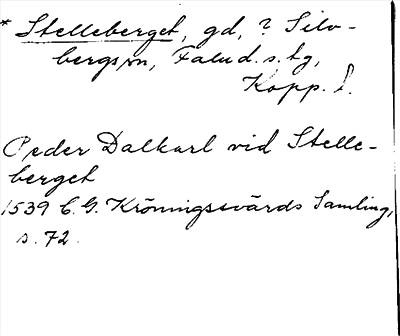 * Stelleberget, gd, ? Silv-
bergs sn, Falu d. s. tg,
Kopp. l.
Peder Dalkarl vid Stelle-
berget
1539 C. G. Kröningssvärds Samling,
s. 72.